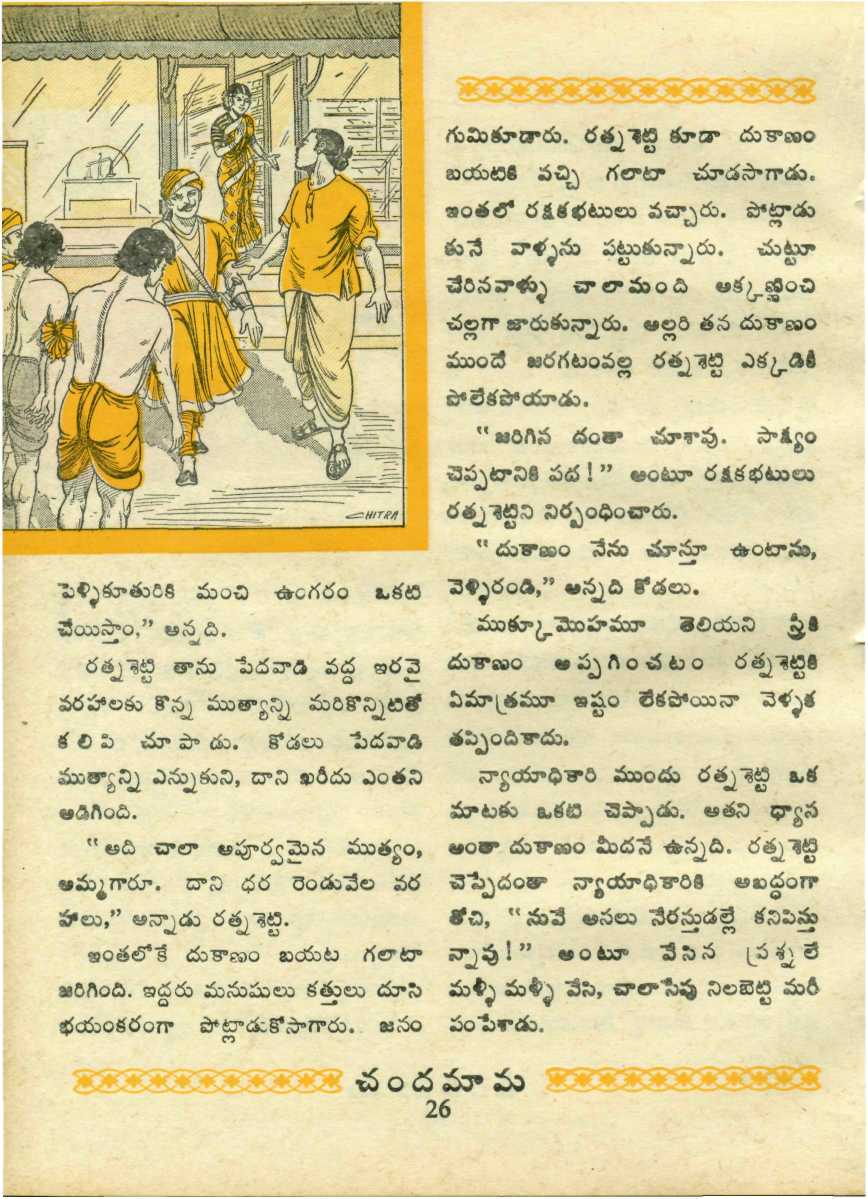 CHITRA
పెళ్ళికూతురికి మంచి ఉంగరం ఒకటి
చేయిస్తాం,” అన్నది.
రత్నశెట్టి తాను పేదవాడి వద్ద ఇరవై
వరహాలకు కొన్న ముత్యాన్ని మరికొన్నిటితో
కలిపి చూపాడు. కోడలు పేదవాడి
ముత్యాన్ని ఎన్నుకుని, దాని ఖరీదు ఎంతని
అడిగింది.
“అది చాలా అపూర్వమైన ముత్యం,
అమ్మగారూ. దాని ధర రెండువేల వర
హాలు,” అన్నాడు రత్నశెట్టి.
ఇంతలోకే దుకాణం బయట గలాటా
జరిగింది. ఇద్దరు మనుషులు కత్తులు దూసి
భయంకరంగా పోట్లాడుకోసాగారు. జనం
గుమికూడారు. రత్నశెట్టి కూడా దుకాణం
బయటికి వచ్చి గలాటా చూడసాగాడు.
ఇంతలో రక్షకభటులు వచ్చారు. పోట్లాడు
కునే వాళ్ళను పట్టుకున్నారు. చుట్టూ
చేరినవాళ్ళు చాలామంది అక్కణ్ణించి
చల్లగా జారుకున్నారు. అల్లరి తన దుకాణం
ముందే జరగటంవల్ల రత్నశెట్టి ఎక్కడికీ
పోలేకపోయాడు.
“జరిగిన దంతా చూశావు. సాక్ష్యం
చెప్పటానికి పద!” అంటూ రక్షకభటులు
రత్నశెట్టిని నిర్బంధించారు.
“దుకాణం నేను చూస్తూ ఉంటాను,
వెళ్ళిరండి,” అన్నది కోడలు.
ముక్కూమొహమూ తెలియని స్త్రీకి
దుకాణం అప్పగించటం రత్నశెట్టికి
ఏమాత్రమూ ఇష్టం లేకపోయినా వెళ్ళక
తప్పిందికాదు.
న్యాయాధికారి ముందు రత్నశెట్టి ఒక
మాటకు ఒకటి చెప్పాడు. అతని ధ్యాస
అంతా దుకాణం మీదనే ఉన్నది. రత్నశెట్టి
చెప్పేదంతా న్యాయాధికారికి అబద్ధంగా
తోచి, “నువే అసలు నేరస్తుడల్లే కనిపిస్తు
న్నావు!” అంటూ వేసిన ప్రశ్నలే
మళ్ళీ మళ్ళీ వేసి, చాలాసేపు నిలబెట్టి మరీ
పంపేశాడు.
చందమామ
26